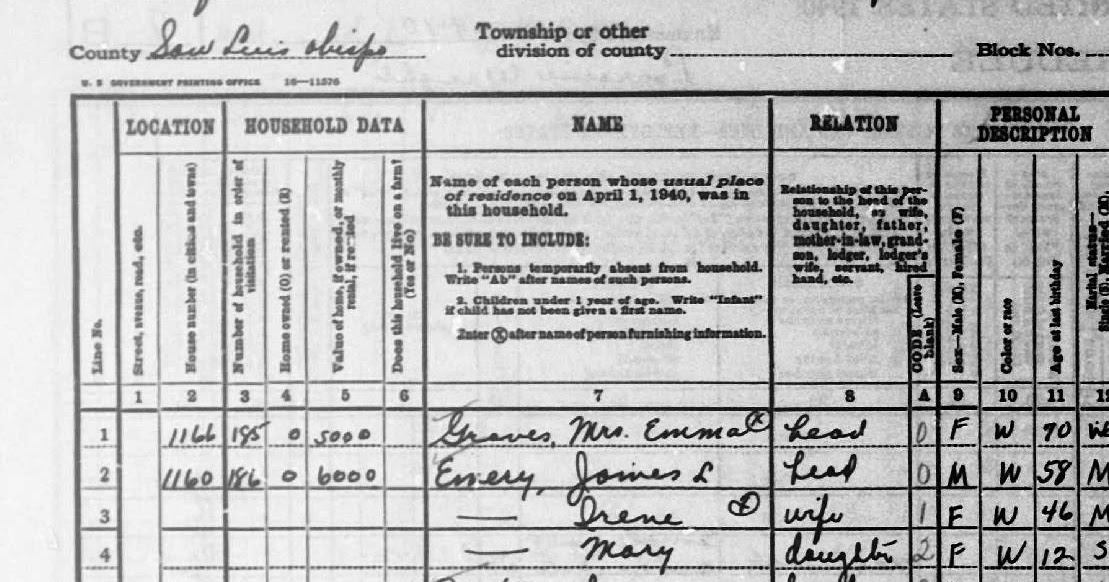 County San Luis Obispo
Township or other
division of county
Block Nos.
U. S. GOVERNMENT PRINTING OFFICE 16—11576
LOCATION
HOUSEHOLD DATA
NAME
RELATION
PERSONAL
DESCRIPTION
Line No.
Street, avenue, road, etc.
House number (in cities and towns)
Number of household in order of
visitation
Home owned (O) or rented (R)
Value of home, if owned, or monthly
rental, if rented
Does this household live on a farm?
(Yes or No)
Name of each person whose usual place
of residence on April 1, 1940, was in
this household.
BE SURE TO INCLUDE:
1. Persons temporarily absent from household.
Write "Ab" after names of such persons.
2. Children under 1 year of age. Write "Infant"
if child has not been given a first name.
Enter X after name of person furnishing information.
Relationship of this per-
son to the head of the
household, as wife,
daughter, father,
mother-in-law, grand-
son, lodger, lodger's
wife, servant, hired
hand, etc.
CODE (Leave
blank)
Sex—Male (M), Female (F)
Color or race
Age at last birthday
Marital status—
Single (S), Married (M),
1 2 3 4 5 6 7 8 A 9 10 11 12
1 1166 185 O 5000 Graves, Mrs. Emma X head 0 F W 70 Wd
2 1160 186 O 6000 Emery, James L head 0 M W 58 M
3 — Irene wife 1 F W 46 M
4 — Mary daughter 2 F W 12 S